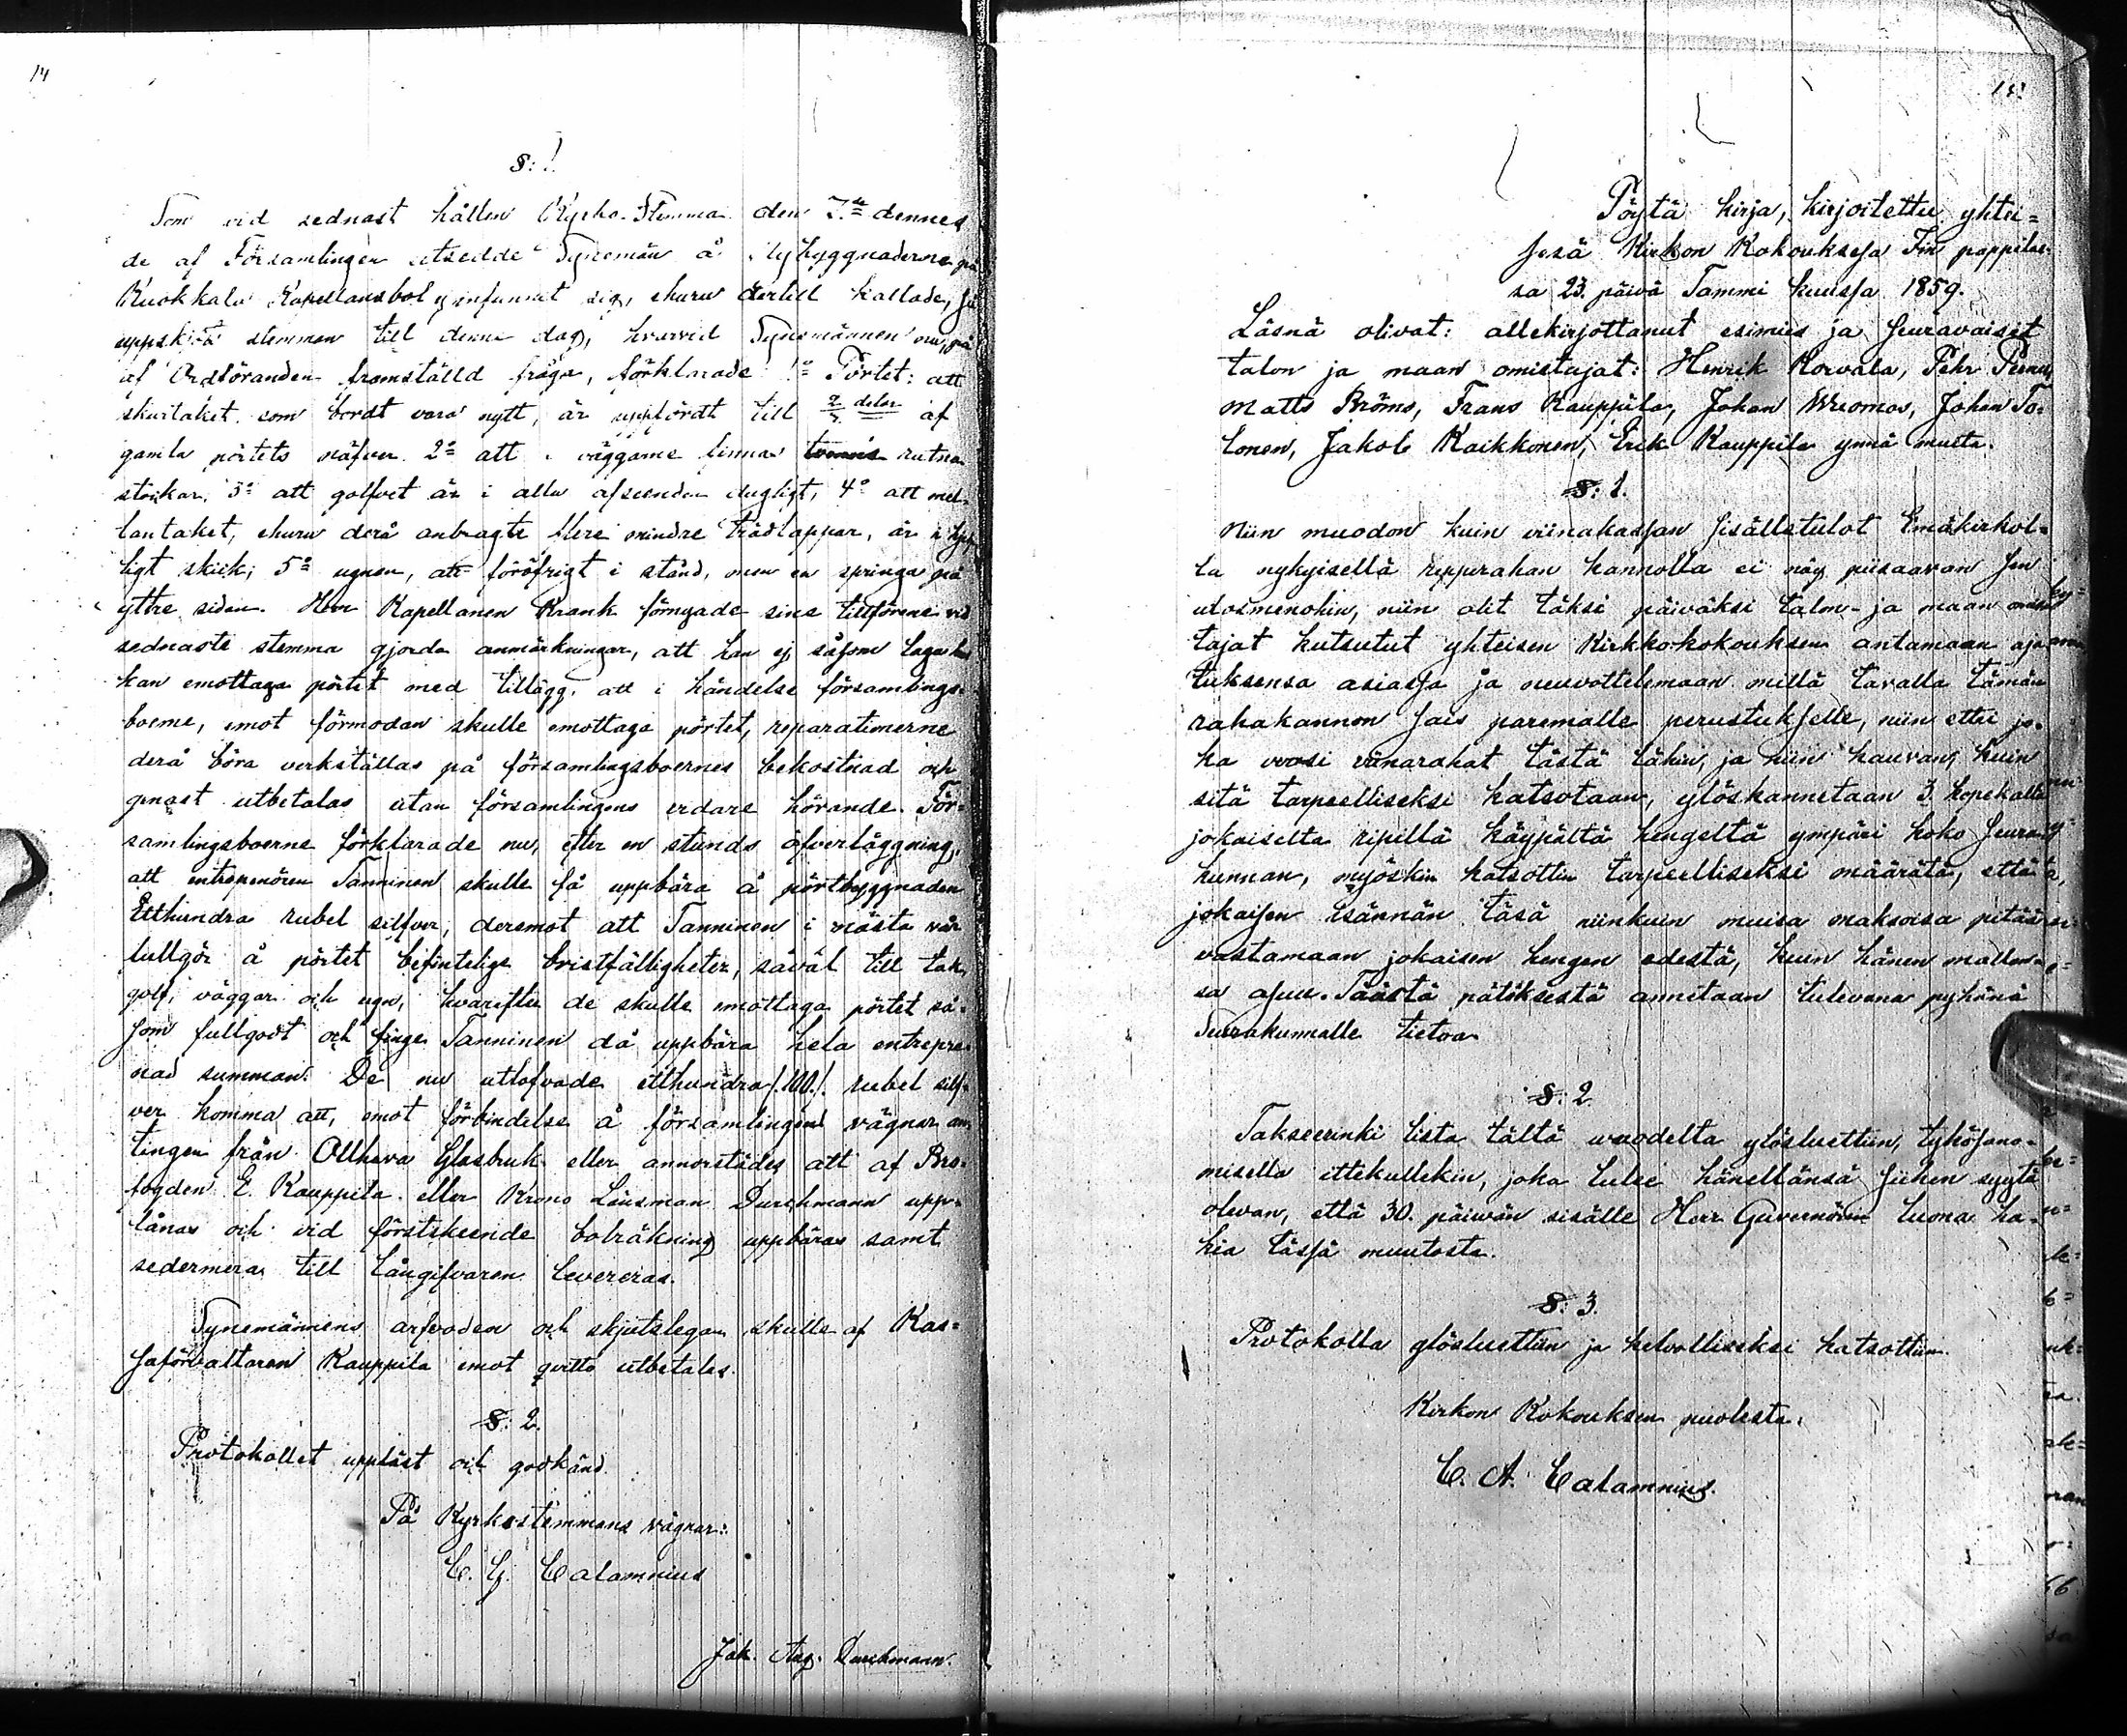 14
§: 1.
Som vid sednast hållen Kyrko-Stemma den 7:de dennes
de af Församlingen utsedde Synemän å nybyggnaderne på
Kuokkala Kapellansbol ej infunnit sig, ehuru dertill kallade, så
uppskjöts stemman till denne dag, hvarvid Synemännen nu, på
af Ordföranden framställd fråga, förklarade 1:o Pörtet: att
skurtaket som bordt vara nytt, är uppfördt till delar af
gamla pörtets näfver 2:o att i väggarne finnas rutna
stockar, 3:o att golfvet är i alla afseenden dugligt, 4:o att mel-
lantaket, ehuru derå anbragte flere mindre trädlappar, är i
ligt skick; 5:o ugnen, att föröfrigt i stånd, men en springa på
yttre sidan. Herr Kapellanen Kraank förnyade sina tillförene vid
sednaste stemma gjorda anmärkningar, att han ej såsom
kan emottaga pörtet med tillägg, att i händelse församlings-
boerne, emot förmodan skulle emottaga pörtet, reparationerne
derå böra verkställas på församlingsboernes bekostnad och
genast utbetalas utan församlingens vidare hörande. För-
samlingsboerne förklarade nu, efter en stunds öfverläggning,
att entreprenören Tanninen skulle få uppbära å pörtbyggnaden
Etthundra rubel silfver, deremot att Tanninen i nästa vår
fullgör å pörtet befinteliga bristfälligheter, såväl till tak,
golf, väggar och ugn, hvarefter de skulle emottaga pörtet så-
som fullgodt och finge Tanninen då uppbära hela entrepre-
nad summan. De nu utlofvade etthundra /:100:/ rubel silf-
ver komma att, emot förbindelse å församlingens vägnar an-
tingen från Olhava Glasbruk eller annorstädes att af Bro-
fogden E. Kauppila eller Krono Länsman Durchmann upp-
lånas och vid förstskeende bolräkning uppbäras samt
sedermera till Långifvaren levereras.
Synemännens arfvoden och skjutslegan skulle af Kas-
saförvaltaren Kauppila emot qvitto utbetalas.
§: 2.
Protokollet uppläst och godkänd.
På Kyrkostemmans vägnar:
C. G. Calamnius
Jak. Aug. Durchmann.
15.
Pöytä kirja, kirjoitettu yhtei-
sesä Kirkon Kokouksesa Iin pappilas-
sa 23. päivä Tammi kuussa 1859.
Läsnä olivat: allekirjottanut esimies ja seuravaiset
talon ja maan omistajat: Henrik Korvala, Pehr
Matts Bröms, Frans Kauppila, Johan Wuomas, Johan To-
lonen, Jakob Kaikkonen, Erik Kauppila ynnä muita.
§: 1.
Niin muodon kuin viinakassan sisälletulot Emäkirkol-
la nykyisellä rippirahan kannolla ei näy piisaavan sen
ulosmenohin, niin olit täksi päiväksi talon- ja maan omis-
tajat kutsutut yhteiseen Kirkkokokouksen antamaan aja-
tuksensa asiassa ja neuvottelemaan millä tavalla tämän
rahakannon sais paremalle perustukselle, niin että jo-
ka vuosi viinarahat tästä läkin, ja niin kauvan, kuin
sitä tarpeelliseksi katsotaan, ylöskannetaan 3 kopekalla
jokaiselta ripillä käypältä hengeltä ympäri koko seura-
kunnan, myöskin katsottin tarpeelliseksi määrätä, että
jokaisen isännän täsä niinkuin muisa maksoisa pitää
vastamaan jokaisen hengen edestä, kuin hänen mallen-
sa asuu. Täästä pätöksestä annetaan tulevana pyhänä
Seurakunnalle tietoa.
§: 2.
Takseerinki lista tältä vuodelta ylösluettiin, tykösano-
misella ittekullekin, joka lulee hänellänsä siihen syytä
olevan, että 30. päiwän sisälle Herr Guvernörin luona ha-
kia tässä muutosta.
§: 3.
Protokolla ylösluettiin ja kelvolliseksi katsottiin.
Kirkon Kokouksen puolesta:
C. A. Calamnius.